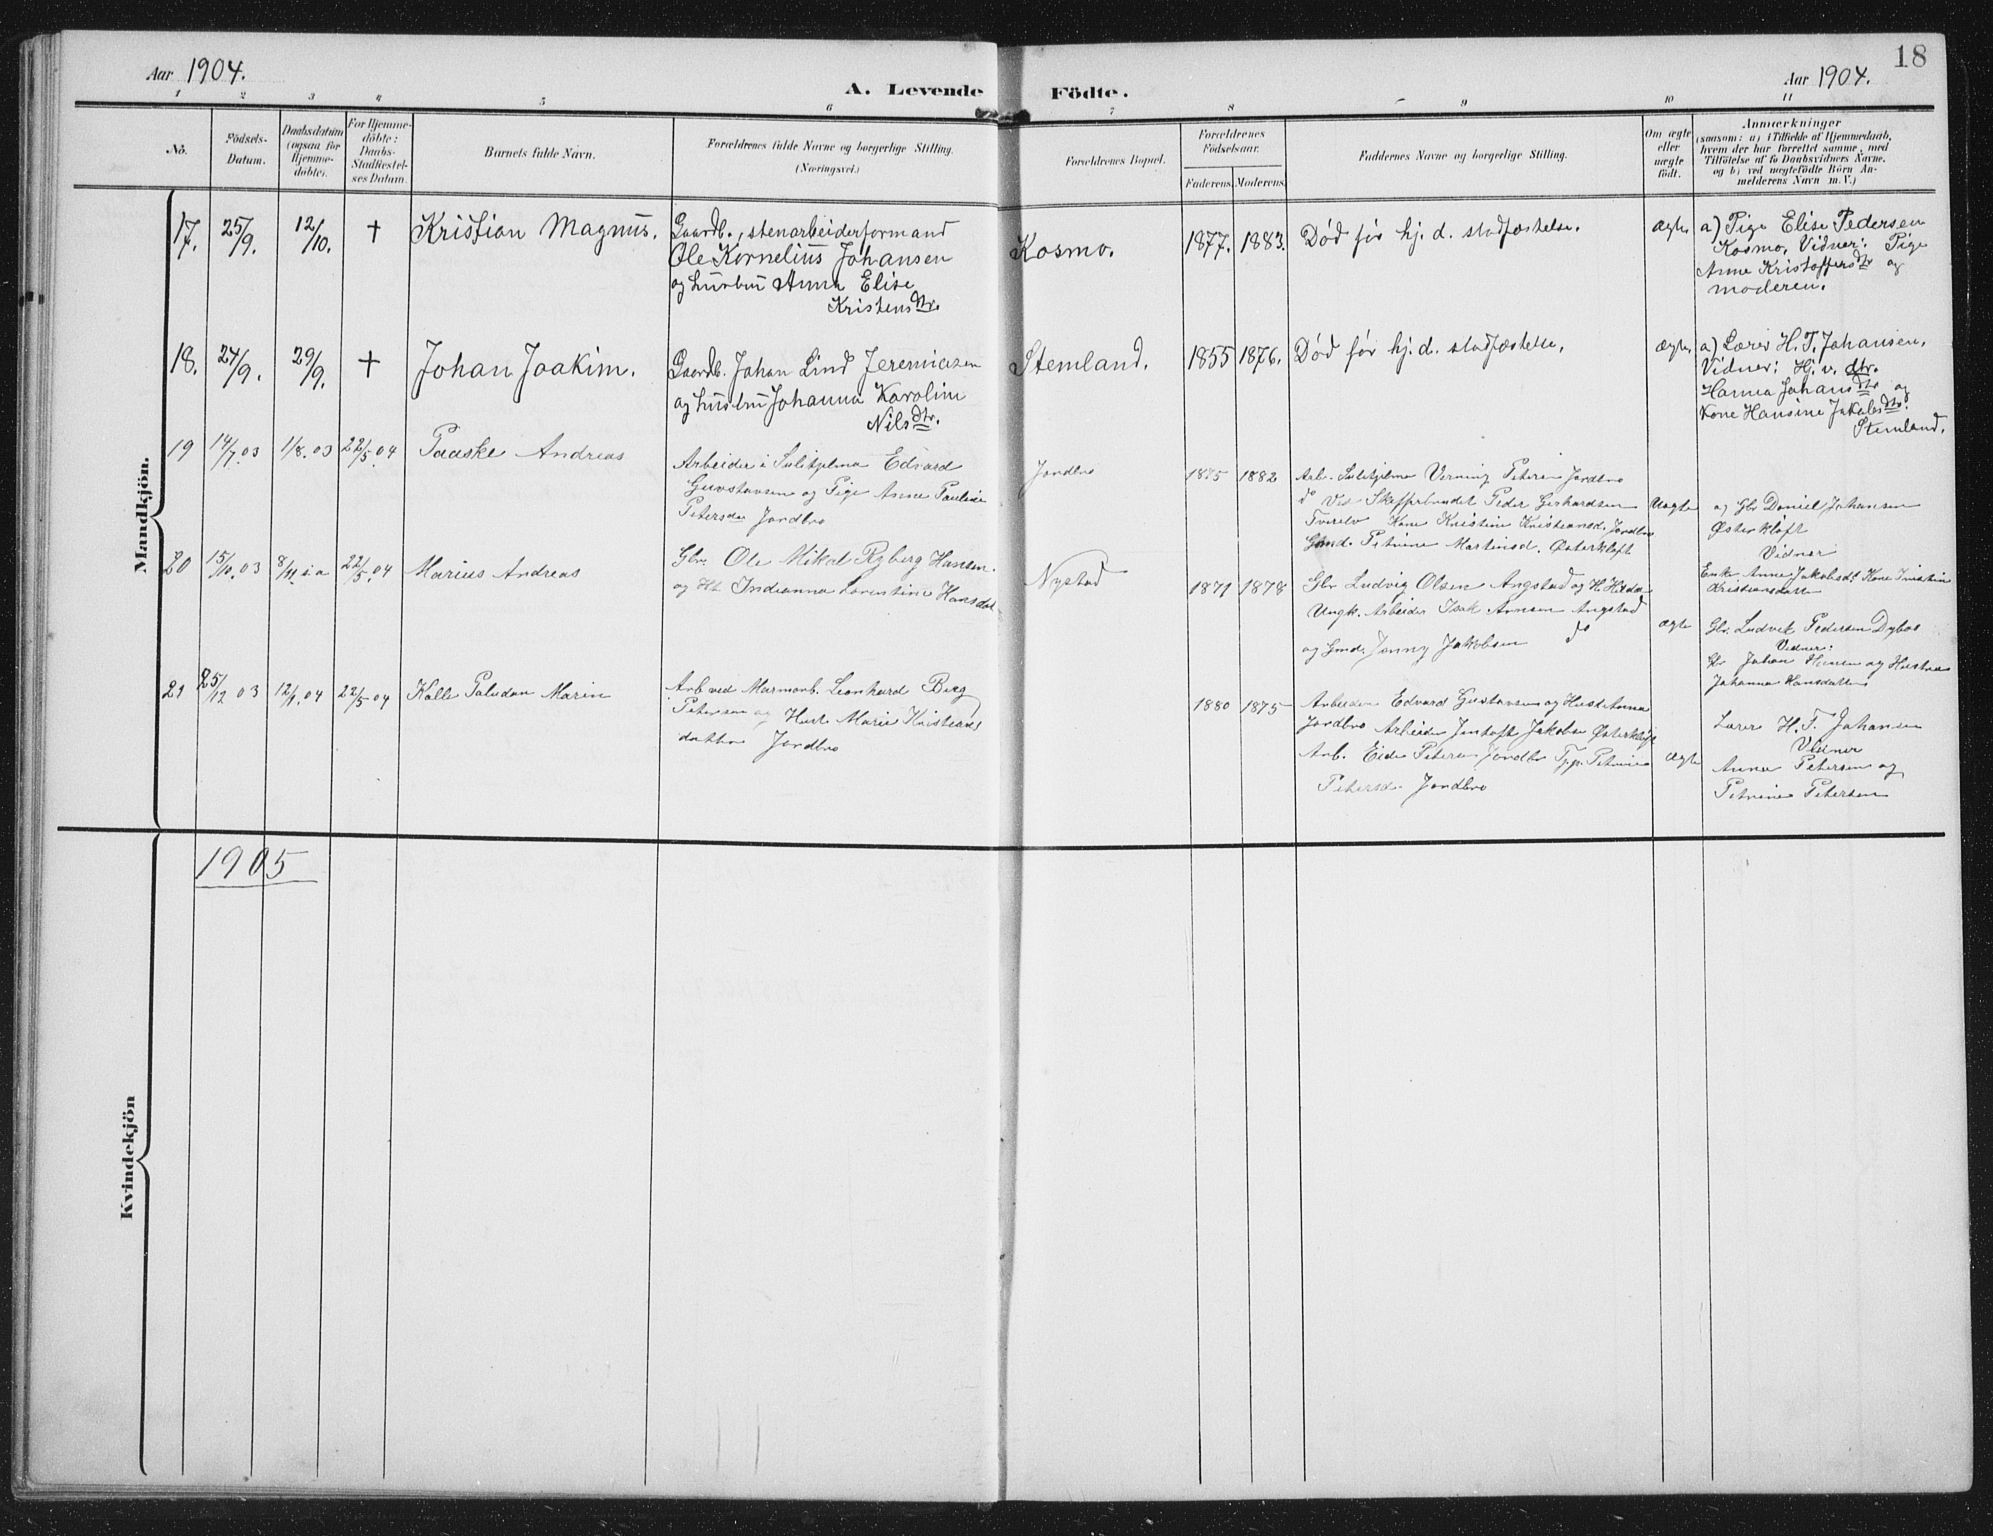 18
Aar 1904.
A. Levende Födte.
Aar 1904.
1 2 3 4 5 6 7 8 9 10 11
No.
Födsels-
Datum.
Daabsdatum
(ogsaa for
Hjemme-
döbte).
For Hjemme-
döbte:
Daabs-
Stadfæstel-
ses Datum.
Barnets fulde Navn.
Forældrenes fulde Navne og borgerlige Stilling.
(Næringsvei.)
Forældrenes Bopæl.
Forældrenes
Födselsaar.
Faderens. Moderens.
Faddernes Navne og borgerlige Stilling.
Om ægte
eller
uægte
født.
Anmærkninger
(saasom: a) i Tilfælde af Hjemmedaab,
hvem der har forrettet samme, med
Tilföielse af to Daabsvidners Navne.
og b) ved uægtefödte Börn An-
melderens Navn m. V.)
Mandkjön.
17. 25/9. 12/10. † Kristian Magnus.
Gaardb., stenarbeiderformand
Ole Kornelius Johansen
og hustru Anna Elise
Kristensdtr.
Kosmo. 1877. 1883. Död før hj. d. stadfæstelse. ægte.
a) Pige Elise Pedersen
Kosmo. Vidner: Pige
Anne Kristoffersdtr og
moderen.
18. 24/9. 29/9. † Johan Joakim.
Gaardb. Johan Lind Jeremiasen
og hustru Johanna Karoline
Nilsdtr.
Stemland. 1855 1876. Död før hj. d. stadfæstelse. ægte.
a) Lærer H. T. Johansen.
Vidner: Hj. v. dtr.
Hanna Johansdtr og
Kone Hansine Jakobsdtr.
Stemland.
19 14/7.03 1/8.03 22/5.04 Paaske Andreas
Arbeider i Sulitjelma Edvard
Gustavsen og Pige Anna Pauline
Petersdtr Jordbro
Jordbro 1875 1882
Arb. Sulitjelma Verning Petersen Jordbro
do Ved Skafferbrudet Peder Gerhardsen
Tverelv Kone Kristine Kristiansd. Jordbro
Gmd. Petrine Martinsd. Østerkløft
Uægte
og Gbr Daniel Johansen
Østerkløft
Vidner
Enke Anne Jakobsdt. Kone Kristine
Kristiansdatter
20 15/10.03 8/11 s.a 22/5.04 Marius Andreas
Gbr. Ole Mikal Ryberg Hansen.
og Ht Indianna Lorentine Hansdat.
Nystad 1871 1878
Gbr Ludvig Olsen Angstad og H. Hilda
Ungk. Arbeider Isak Arnsen Angstad
og Gmd. Jenny Jakobsen do
ægte
Gbr. Ludvik Pedersen Dybos
Vidner:
Gbr Johan Hansen og Hustru
Johanna Hansdatter
21 25/12 03 12/1.04 22/5 04 Kalle Paludan Marin
Arb ved Marmorb. Leonhard Berg
Petersen og Hust. Marie Kristians
datter Jordbro
1880 1875
Arbeider Edvard Gustavsen og Hust Anna
Jordbro Arbeider Jentoft Jakobsen Østerkløft
Arb. Eide Petersen Jordbr Tpp. Petrine
Petersd. Jordbro
ægte
Lærer H. T. Johansen
Vidner
Anna Petersen og
Petrine Petersen
Kvindekjön
1905